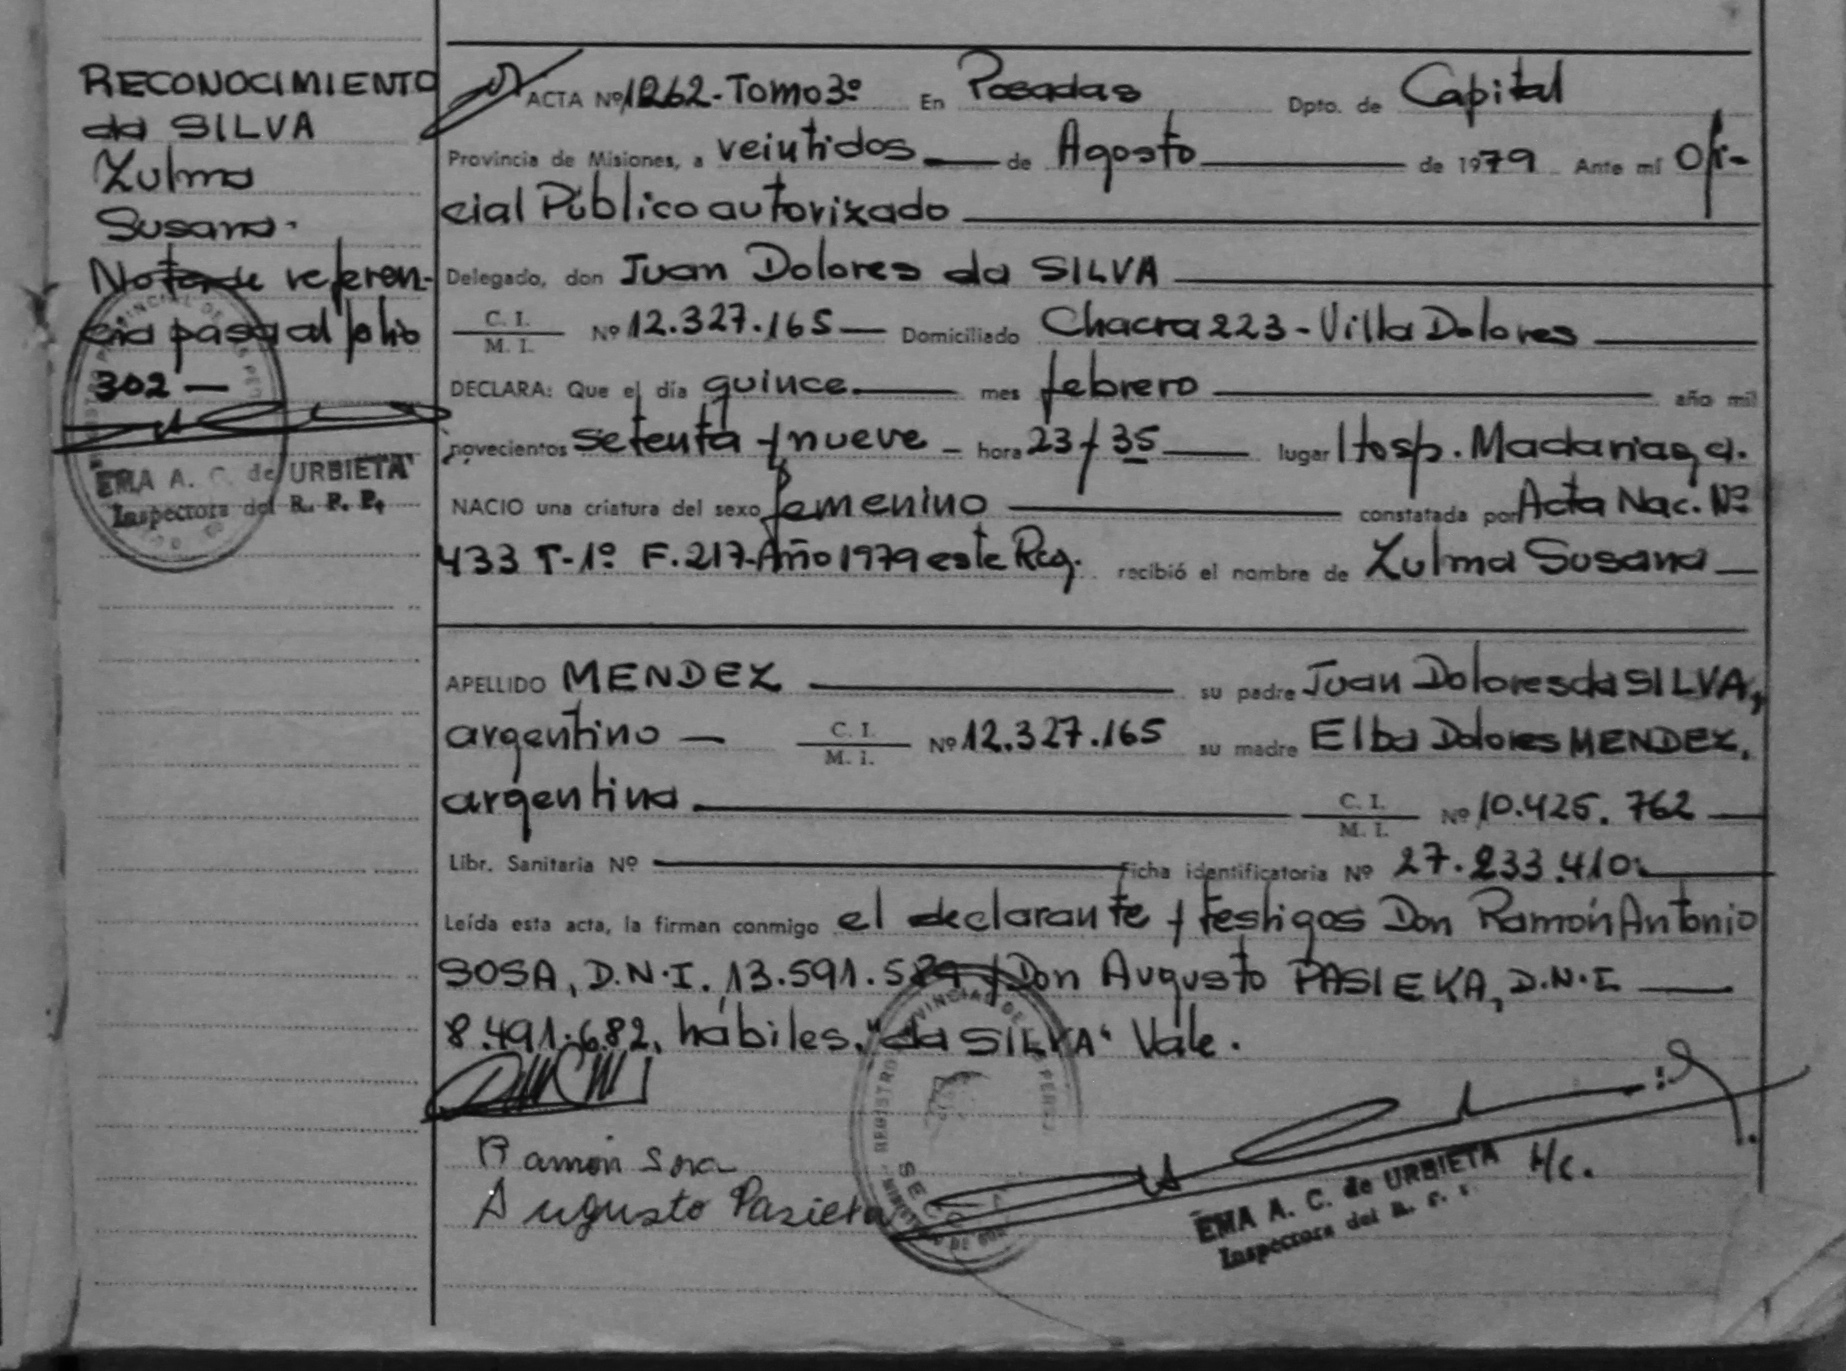 RECONOCIMIENTO
da SILVA
Zulma
Susana.
Nota de referen-
cia pasa al folio
302 —
EMA A. C. de URBIETA
Inspectora del R. P. P.
ACTA Nº 1262-Tomo 3º En Posadas Dpto. de Capital
Provincia de Misiones, a veintidos de Agosto de 1979 Ante mí Ofi-
cial Público autorizado
Delegado, don Juan Dolores da SILVA
C. I. / M. I. Nº 12.327.165 — Domiciliado Chacra 223 - Villa Dolores
DECLARA: Que el día quince mes febrero año mil
novecientos setenta y nueve — hora 23 y 35 lugar Hosp. Madariaga.
NACIO una criatura del sexo femenino constatada por Acta Nac. Nº
433 T-1º F. 217-Año 1979 este Reg. recibió el nombre de Zulma Susana —
APELLIDO MENDEZ su padre Juan Dolores da SILVA,
argentino — C. I. / M. I. Nº 12.327.165 su madre Elba Dolores MENDEZ,
argentina C. I. / M. I. Nº 10.425.762 —
Libr. Sanitaria Nº Ficha identificatoria Nº 27.233.410.
Leída esta acta, la firman conmigo el declarante y testigos Don Ramón Antonio
SOSA, D.N.I. 13.591.589 y Don Augusto PASIEKA, D.N.I. —
8.491.682, hábiles. "da SILVA" Vale.
Ramón Sosa
Augusto Pasieka
REGISTRO PROVINCIAL DE
EMA A. C. de URBIETA
Inspectora del R.